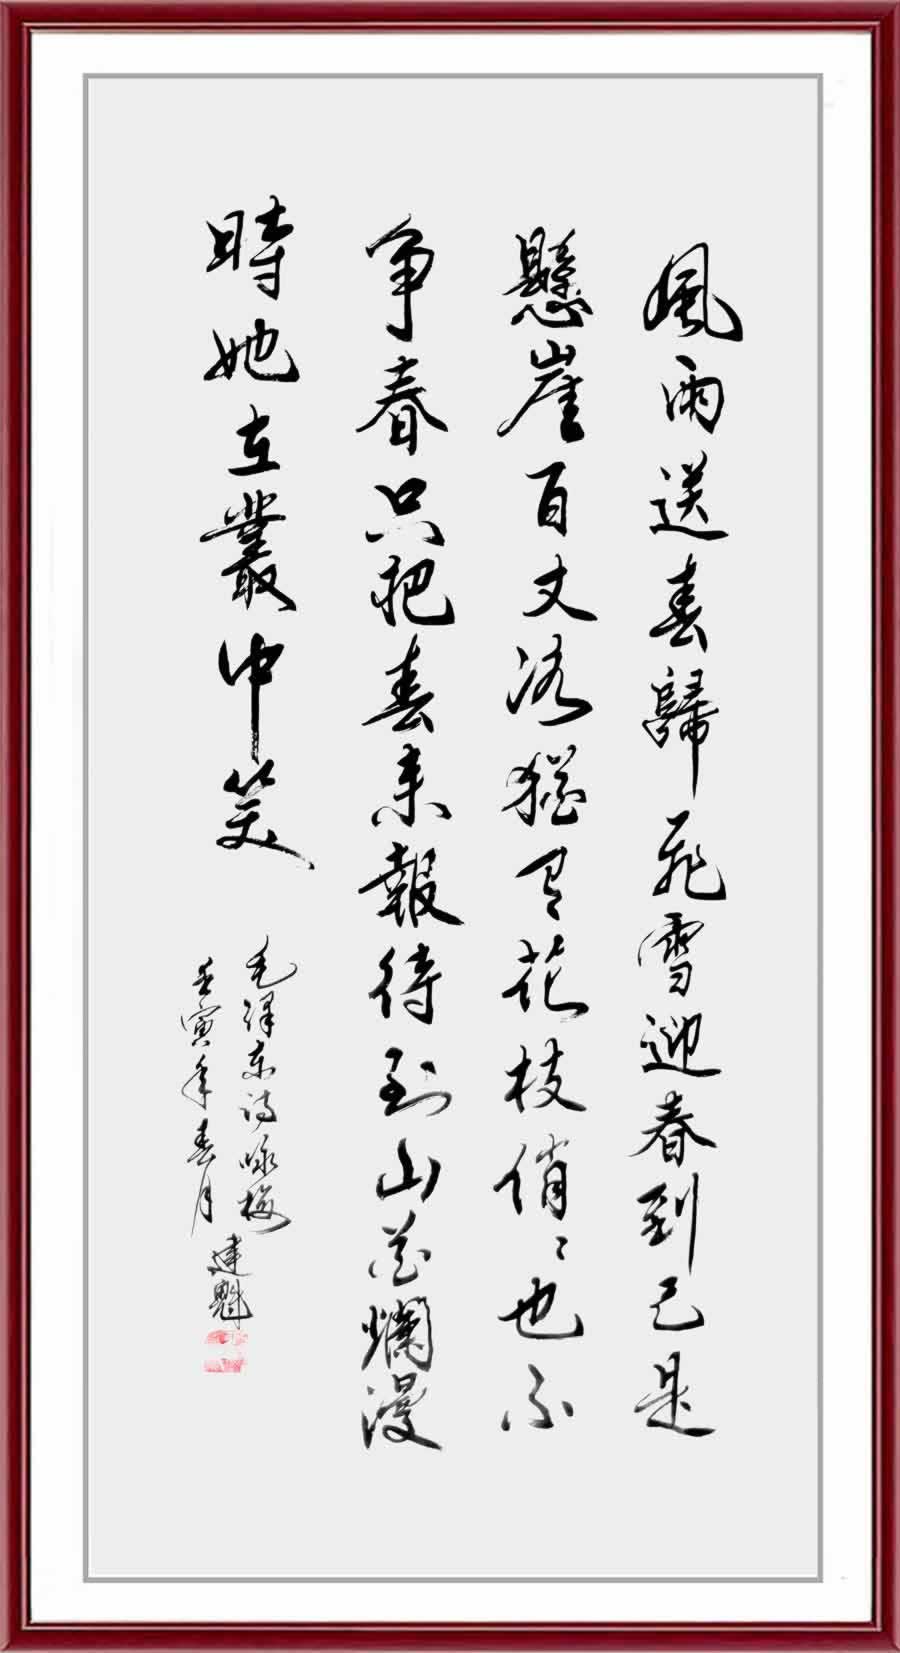 風雨送春歸飛雪迎春到已是
懸崖百丈冰猶有花枝俏〻也不
争春只把春来報待到山花爛漫
時她在叢中笑
毛澤东诗咏梅
壬寅年春月
建魁